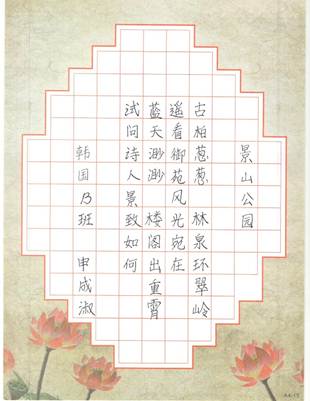 景山公园
古柏葱葱 林泉环翠岭
遥看御苑风光宛在
蓝天渺渺 楼阁出重霄
试问诗人景致如何
韩国乃班 申成淑